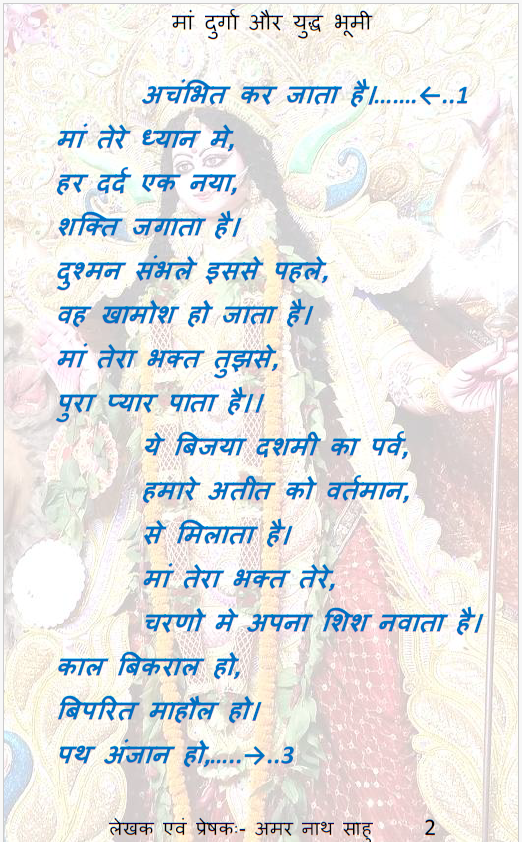 मां दुर्गा और युद्ध भूमी
अचंभित कर जाता है।.......←..1
मां तेरे ध्यान मे,
हर दर्द एक नया,
शक्ति जगाता है।
दुश्मन संभले इससे पहले,
वह खामोश हो जाता है।
मां तेरा भक्त तुझसे,
पुरा प्यार पाता है।।
ये बिजया दशमी का पर्व,
हमारे अतीत को वर्तमान,
से मिलाता है।
मां तेरा भक्त तेरे,
चरणो मे अपना शिश नवाता है।
काल बिकराल हो,
बिपरित माहौल हो।
पथ अंजान हो,.....→..3
लेखक एवं प्रेषकः- अमर नाथ साहु 2